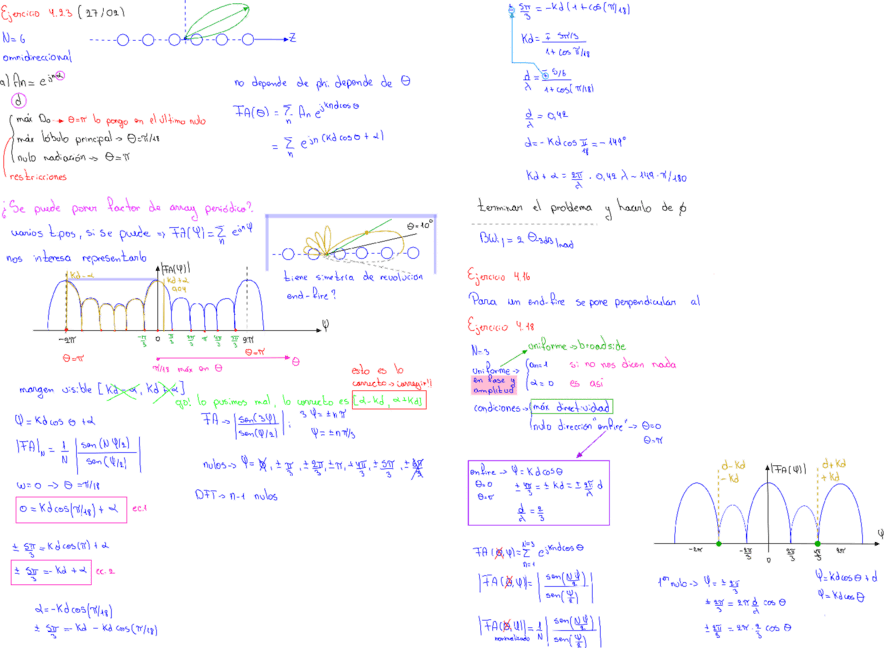 Ejercicio 4.2.3 (27/02)
N=6
omnidireccional
a) An = e^jnα
d
más Do → θ=π lo pongo en el último nulo
más lóbulo principal → θ=π/18
nulo radiación → θ=π
restricciones
Z
no depende de phi. depende de θ
FA(θ) = Σ_n An e^jkndcosθ
= Σ_n e^jn(kdcosθ + α)
¿Se puede poner factor de array periódico?
varios tipos, si se puede => FA(ψ) = Σ_n e^jnψ
nos interesa representarlo
θ=10°
tiene simetría de revolución
end-fire?
|FA(ψ)|
kd-α
kd+α
-2π
-π/3
0
π/3
2π/3
π
4π/3
5π/3
2π
ψ
θ=π
π/18 más en θ
θ=π
θ
margen visible [kd-α, kd+α]
ojo! lo pusimos mal, lo correcto es [α-kd, α+kd]
esto es lo
correcto → corregir!!
ψ = kd cos θ + α
|FA|_N = 1/N |sen(Nψ/2) / sen(ψ/2)|
ω=0 → θ=π/18
0 = kd cos(π/18) + α ec.1
± 5π/3 = kd cos(π) + α
± 5π/3 = -kd + α ec.2
α = -kd cos(π/18)
± 5π/3 = -kd - kd cos(π/18)
FA → |sen(3ψ) / sen(ψ/2)| ; 3ψ = ±nπ
ψ = ±nπ/3
nulos → ψ = 0, ± π/3, ± 2π/3, ±π, ± 4π/3, ± 5π/3, ± 6π/3
DFT → n-1 nulos
± 5π/3 = -kd (1 + cos(π/18))
kd = ∓ 5π/3 / 1+cos π/18
d/λ = ∓ 5/6 / 1+cos(π/18)
d/λ = 0,42
d = -kd cos π/18 = -149°
kd + α = 2π/λ · 0,42 λ - 149·π/180
terminar el problema y hacerlo de ø
BW1 = 2 θ3dB|rad
Ejercicio 4.16
Para un end-fire se pone perpendicular al
Ejercicio 4.18
N=3
uniforme → broadside
uniforme →
en fase y
amplitud
an=1 si no nos dicen nada
α=0 es así
condiciones →
máx directividad
nulo dirección "enfire" → θ=0
θ=π
enfire → ψ = kd cosθ
θ=0
θ=π
± 4π/3 = ± kd = ± 2π/λ d
d/λ = 2/3
FA(θ,ψ) = Σ_{n=1}^{N=3} e^jkndcosθ
|FA(θ,ψ)| = |sen(Nψ/2) / sen(ψ/2)|
|FA(θ,ψ)| normalizado = 1/N |sen(Nψ/2) / sen(ψ/2)|
d-kd
-kd
|FA(ψ)|
d+kd
+kd
-2π
-2π/3
0
2π/3
4π/3
2π
ψ
1er nulo → ψ = ± 2π/3
± 2π/3 = 2π d/λ cos θ
± 2π/3 = 2π · 2/3 cos θ
ψ = kd cosθ + d
ψ = kd cos θ